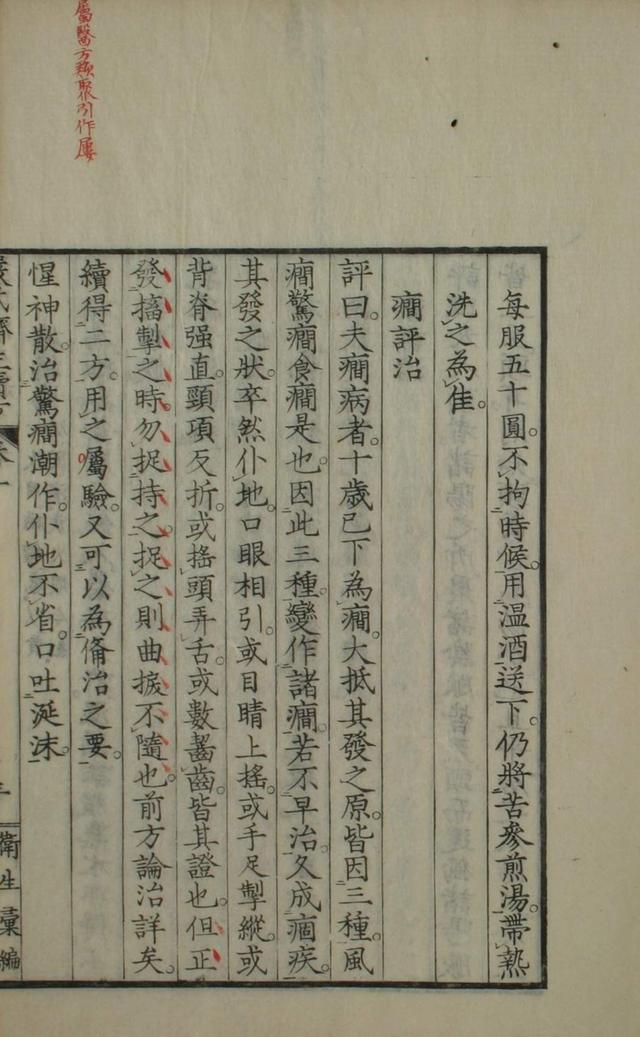 屬醫方類聚引作屢
每服五十圓。不拘時候。用温酒送下。仍將苦參煎湯。帶熱
洗之為佳。
癎評治
評曰。夫癎病者。十歲已下為癎。大抵其發之原。皆因三種。風
癎驚癎食癎是也。因此三種。變作諸癎。若不早治。久成痼疾。
其發之狀。卒然仆地。口眼相引。或目睛上搖。或手足掣縱。或
背脊强直。頸項反折。或搖頭弄舌。或數齧齒。皆其證也。但正
發搐掣之時。勿捉持之。捉之則曲捩不隨也。前方論治詳矣。
續得二方。用之屬驗。又可以為俻治之要。
惺神散。治驚癎潮作。仆地不省。口吐涎沫。
嚴氏濟生續方 卷一
衛生彙編